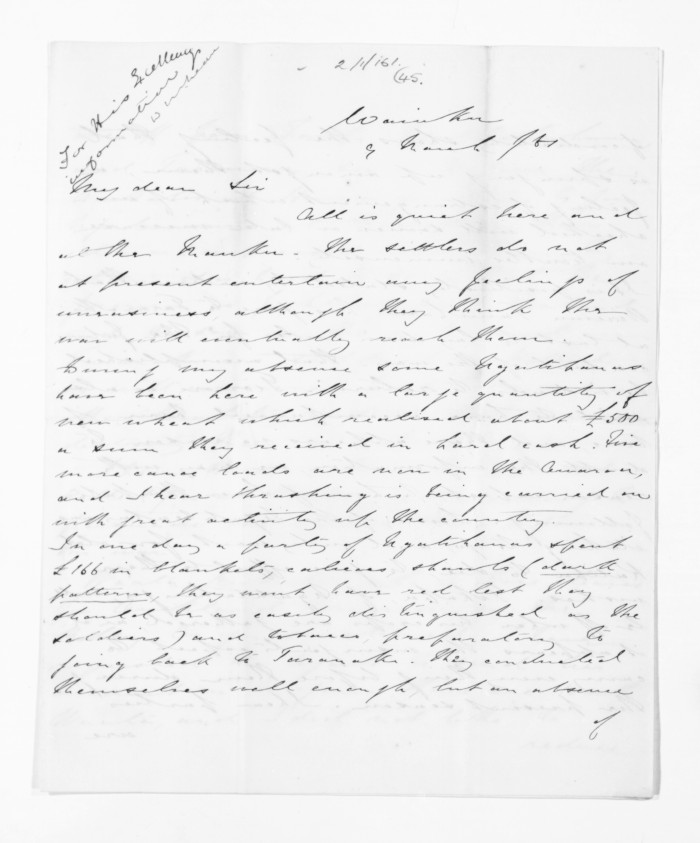 For His Excellency's
information
2/1/161
(45.
Waiuku
9 March /61
My dear Sir
All is quiet here and
at the Mauku. The settlers do not
at present entertain any feelings of
uneasiness although they think the
war will eventually reach them.
During my absence some Ngatihauas
have been here with a large quantity of
new wheat which realised about £500
a sum they received in hard cash. Five
more canoe loads are now in the Awaroa,
and I hear thrashing is being carried on
with great activity up the country.
In one day a party of Ngatihauas spent
£166 in blankets, calicoes shawls (dark
patterns, they wont have red lest they
should be as easily distinguished as the
soldiers) and tobacco, preparatory to
going back to Taranaki. They conducted
themselves well enough but an absence
of